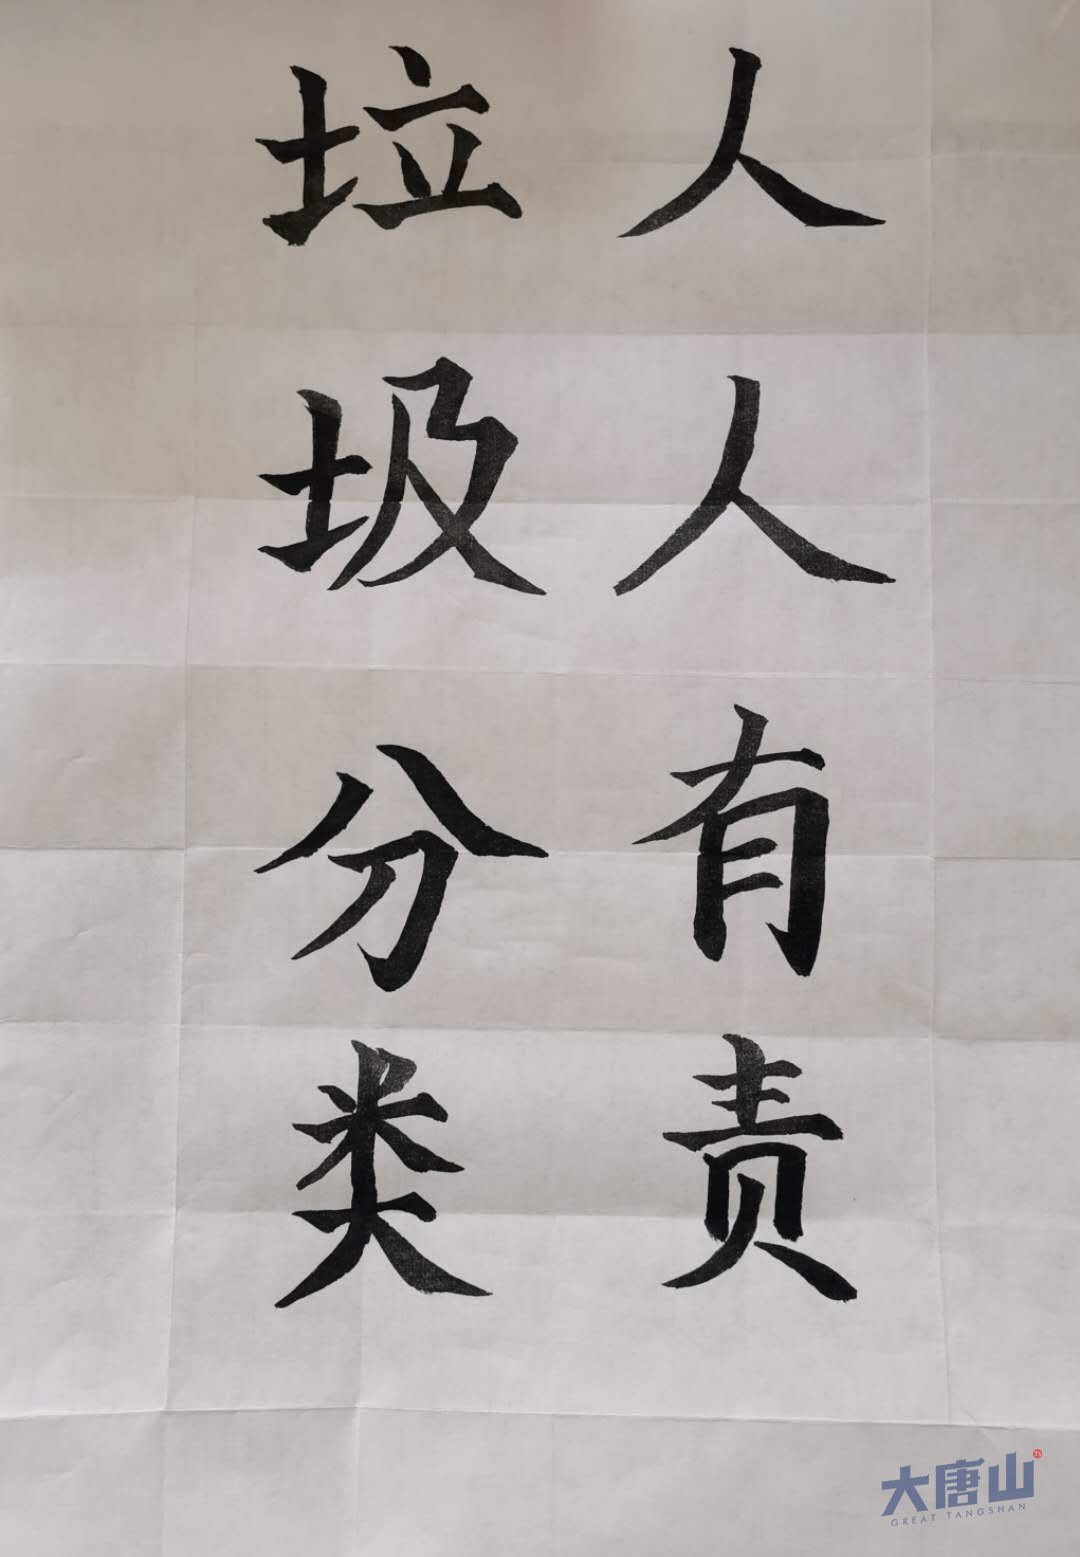 人人有责
垃圾分类
大唐山
GREAT TANGSHAN